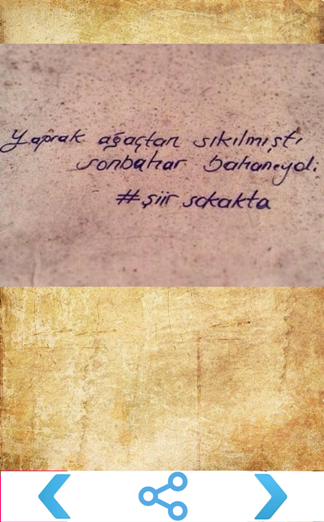 Yaprak ağaçtan sıkılmıştı
sonbahar bahaneydi.
#şiir sokakta